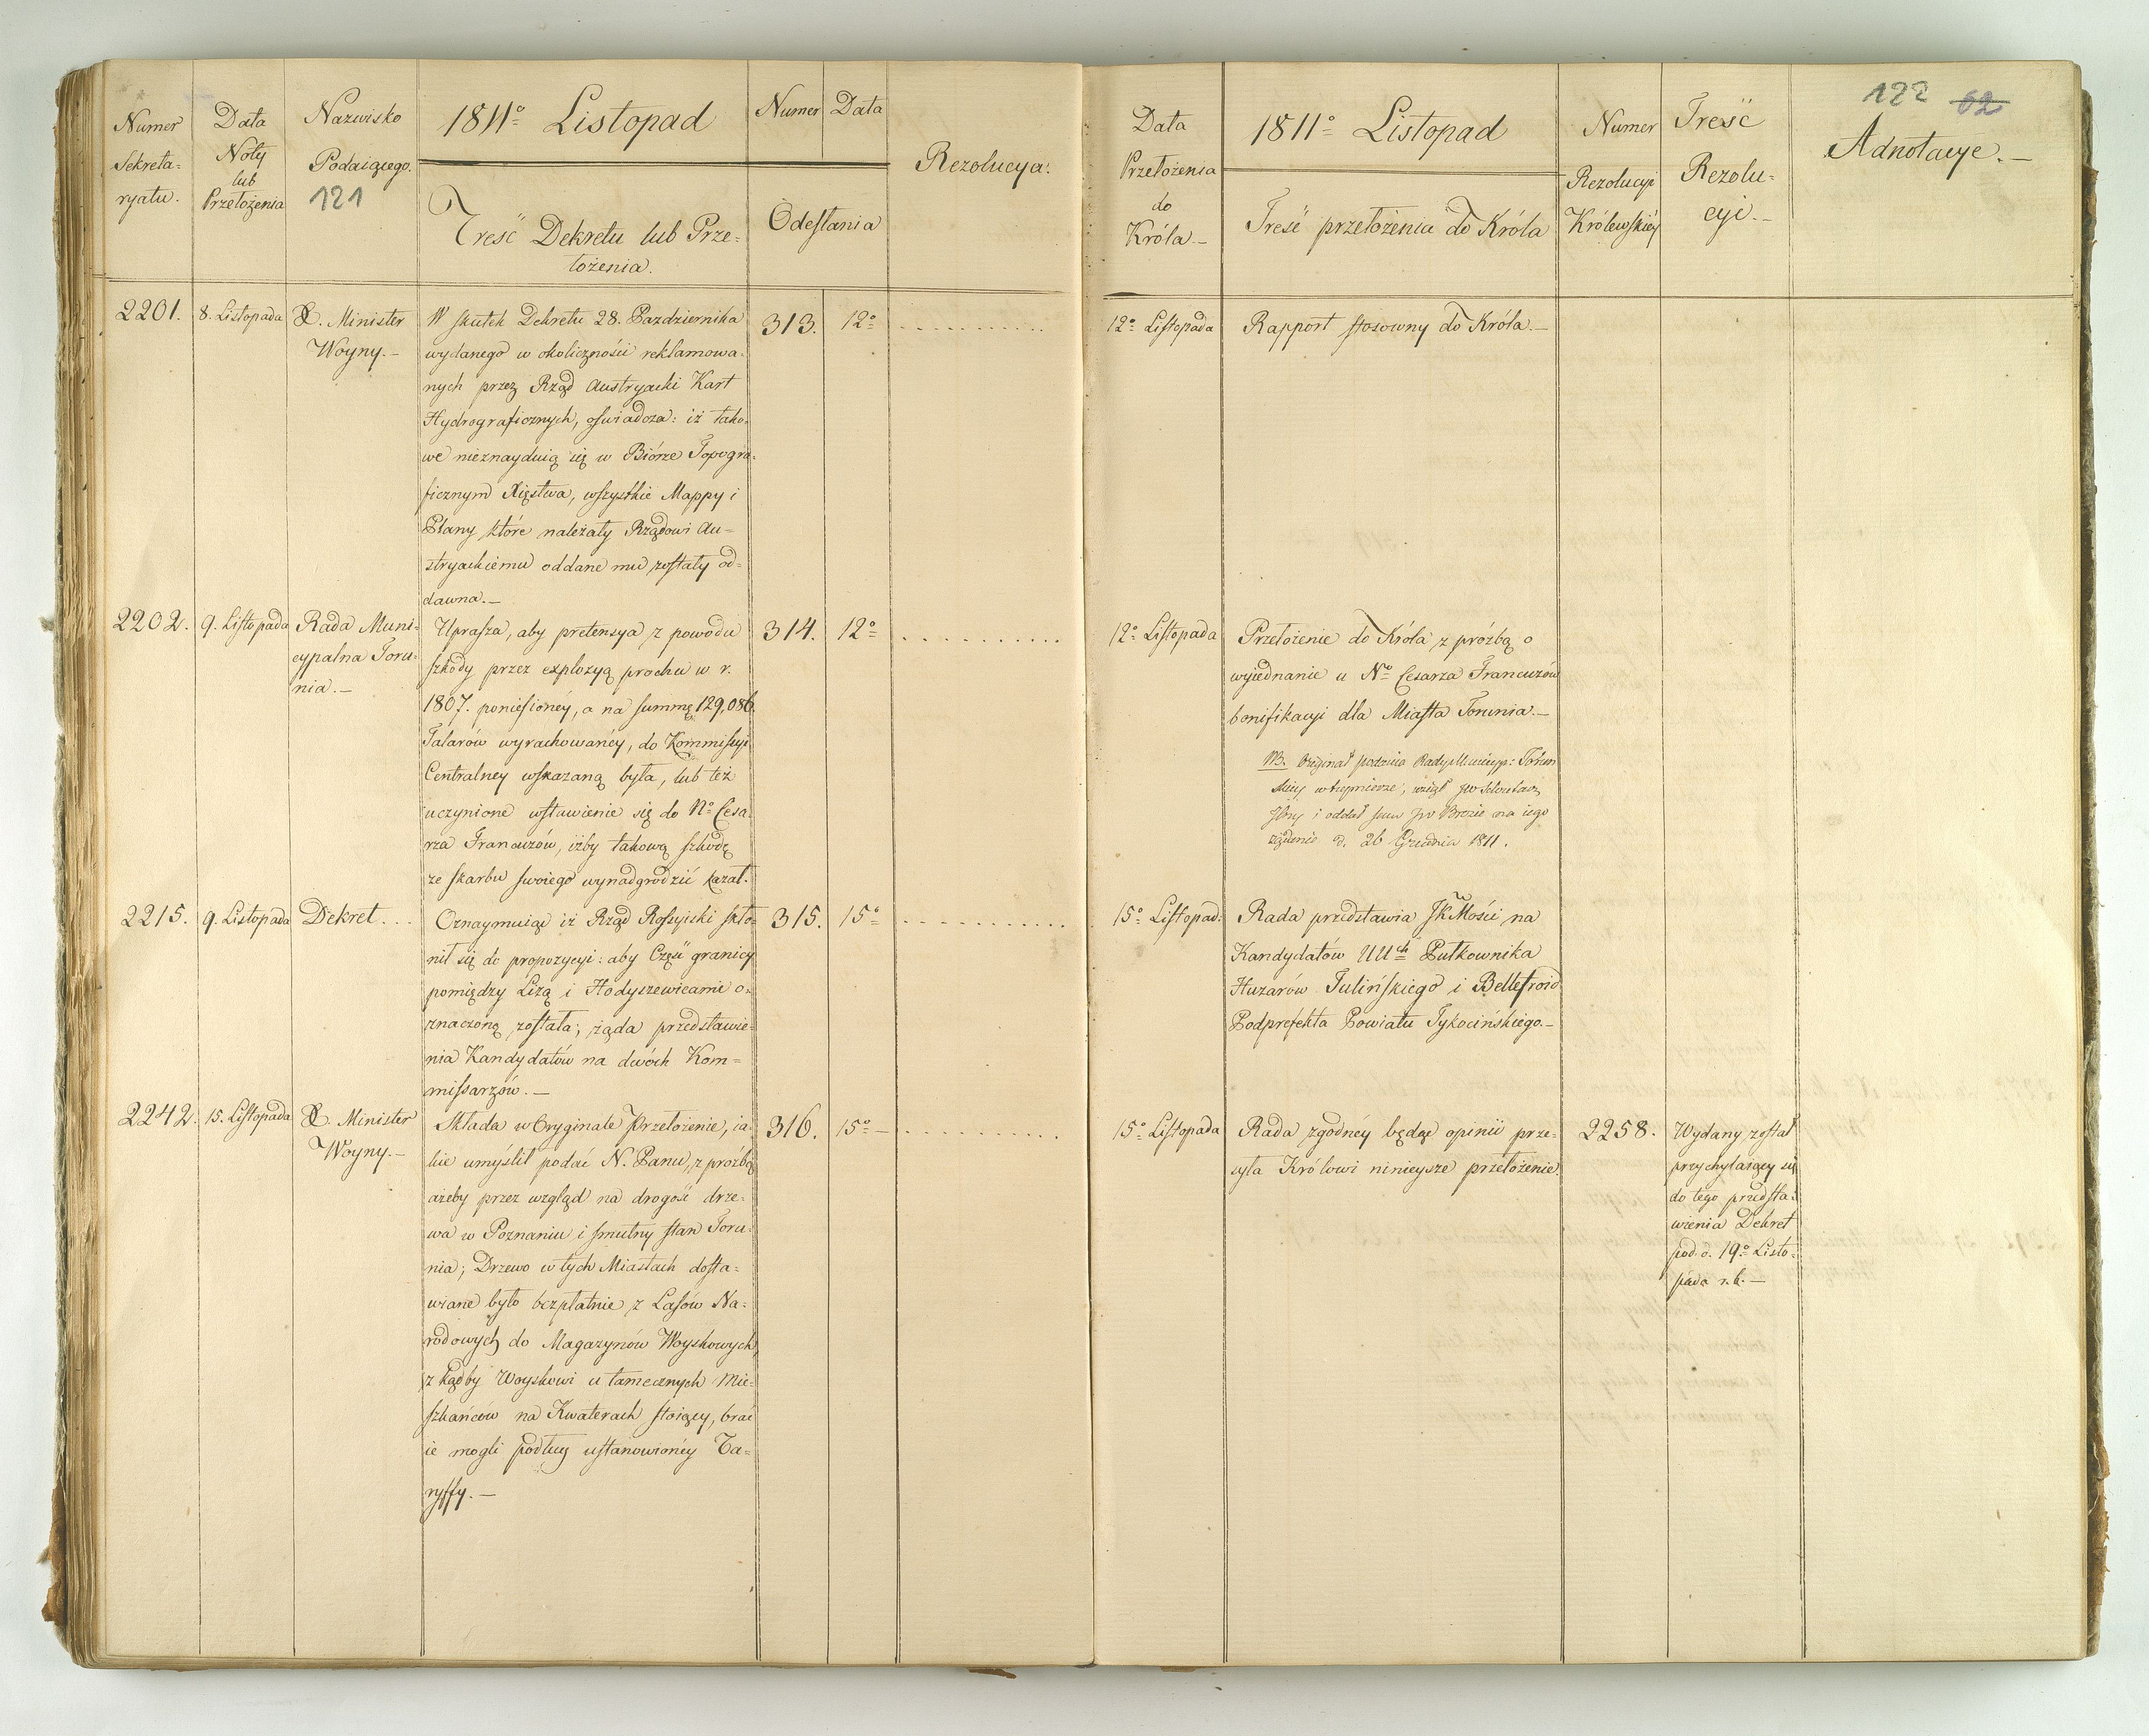 Numer
Sekreta-
ryatu.
Data
Noty
lub
Przełożenia
Nazwisko
Podaiącego.
121
1811º Listopad
Treść Dekretu lub Prze-
łożenia.
Numer Data
Odesłania
Rezolucya.
2201.
8. Listopada
X. Minister
Woyny.—
W skutek Dekretu 28. Pazdziernika
wydanego w okoliczności reklamowa-
nych przez Rząd Austryacki Kart
Hydrograficznych, oświadcza: iż tako-
we nieznayduią się w Biórze Topogra-
ficznym Xięstwa, wszystkie Mappy i
Plany które należały Rządowi Au-
stryackiemu oddane mu zostały od-
dawna.—
313.
12º
..........
2202.
9. Listopada
Rada Muni-
cypalna Toru-
nia.—
Uprasza, aby pretensya z powodu
szkody przez explozyą prochu w r.
1807. poniesionéy, a na summę 129,086
Talarów wyrachowanéy, do Kommissyi
Centralney wskazaną była, lub też
uczynione wstawienie się do Nº Cesa-
rza Francuzów, iżby takową szkodę
ze skarbu swoiego wynadgrodzić kazał.
314.
12º
..........
2215.
9. Listopada
Dekret...
Oznaymuiąc iż Rząd Rossyiski skło-
nił się do propozycyi: aby Część granicy
pomiędzy Lizą i Hodyszewicami o-
znaczoną została; żąda przedstawie-
nia Kandydatów na dwóch Kom-
missarzów.—
315.
15º
..........
2242.
15. Listopada
X. Minister
Woyny.—
Składa w Oryginale Przełożenie, ia-
kie umyślił podać N. Panu, z prośbą
ażeby przez wzgląd na drogość drze-
wa w Poznaniu i smutny stan Toru-
nia; Drzewo w tych Miastach dosta-
wiane było bezpłatnie z Lasów Na-
rodowych do Magazynów Woyskowych,
z kądby Woyskowi u tamecznych Mie-
szkańców na Kwaterach stoiący, brać
ie mogli podług ustanowionéy Ta-
ryffy.—
316.
15º—
..........
Data
Przełożenia
do
Króla.—
1811º Listopad
Treść przełożenia do Króla
Numer
Rezolucyi
Królewskiéy
Treść
Rezolu-
cyi.—
122 62
Adnotacye.—
12º Listopada
Rapport stosowny do Króla.—
12º Listopada
Przełożenie do Króla z prośbą o
wyiednanie u Nº Cesarza Francuzów
bonifikacyi dla Miasta Torunia.—
NB. Oryginał podania Rady Municyp: Toruń
skiey wziął
i oddał na iego
żądanie d. 26 Grudnia 1811.
15º Listopad:
Rada przedstawia JKMości na
Kandydatów UUch Pułkownika
Huzarów Tulińskiego i Bellefroid
Podprefekta Powiatu Tykocińskiego.—
15º Listopada
Rada zgodnéy będąc opinii prze-
syła Królowi ninieysze przełożenie.
2258.
Wydany został
przychylaiący się
do tego przedsta-
wienia Dekret
pod d. 19º Listo-
pada r. b.—